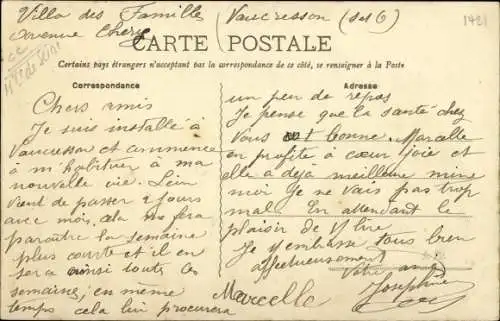 Villa des Famille Vaucresson (S et O)
avenue Chery
1421
CARTE POSTALE
Certains pays étrangers n'acceptant pas la correspondance de ce côté, se renseigner à la Poste
Correspondance
Chers amis
Je suis installée à
Vaucresson et commence
à m'habituer à ma
nouvelle vie. Léon
vient de passer 2 jours
avec moi, cela me fera
paraître la semaine
plus courte et il en
sera ainsi toutes les
semaines, en même
temps cela lui procurera
Adresse
un peu de repos
Je pense que la santé chez
Vous est bonne. Marcelle
en profite à cœur joie et
elle a déjà meilleure mine
moi je ne vais pas trop
mal. En attendant le
plaisir de Vs lire
Je Vs embrasse tous bien
affectueusement
Votre amie
Marcelle Josephine